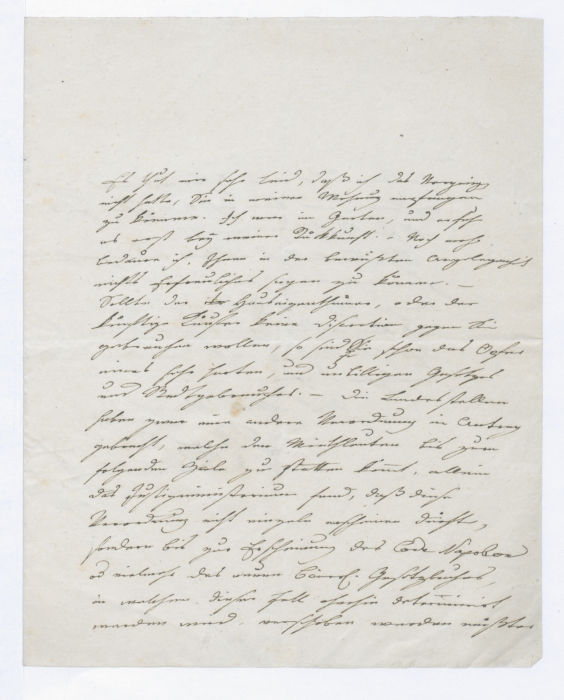 Es thut mir sehr leid, daß ich das Vergnügen
nicht hatte, Sie in meiner Wohnung empfangen
zu können. Ich war im Garten, und erfuhr
es erst bey meiner Zurückkunft. – Noch mehr
bedaure ich, Ihnen in der bewußten Angelegenheit
nichts Erfreuliches sagen zu können. –
Sollte der Hauseigenthümer, oder der
künftige Käufer keine Discretion gegen Sie
gebrauchen wollen, so sind Sie schon das Opfer
eines sehr harten, und unbilligen Gesetzes
und Stadtgebrauches. – Die Landesstellen
haben zwar eine andere Verordnung in Antrag
gebracht, welche den Miethleuten bis zum
folgenden Ziele zu statten kömt, allein
das Justizministerium fand, daß diese
Verordnung nicht einzeln erscheinen dürfte,
sondern bis zur Erscheinung des Code Napoleon
od vielmehr des neuen Gesetzbuches,
in welchem dieser Fall ohnehin determinirt
werden wird, verschoben werden müßte